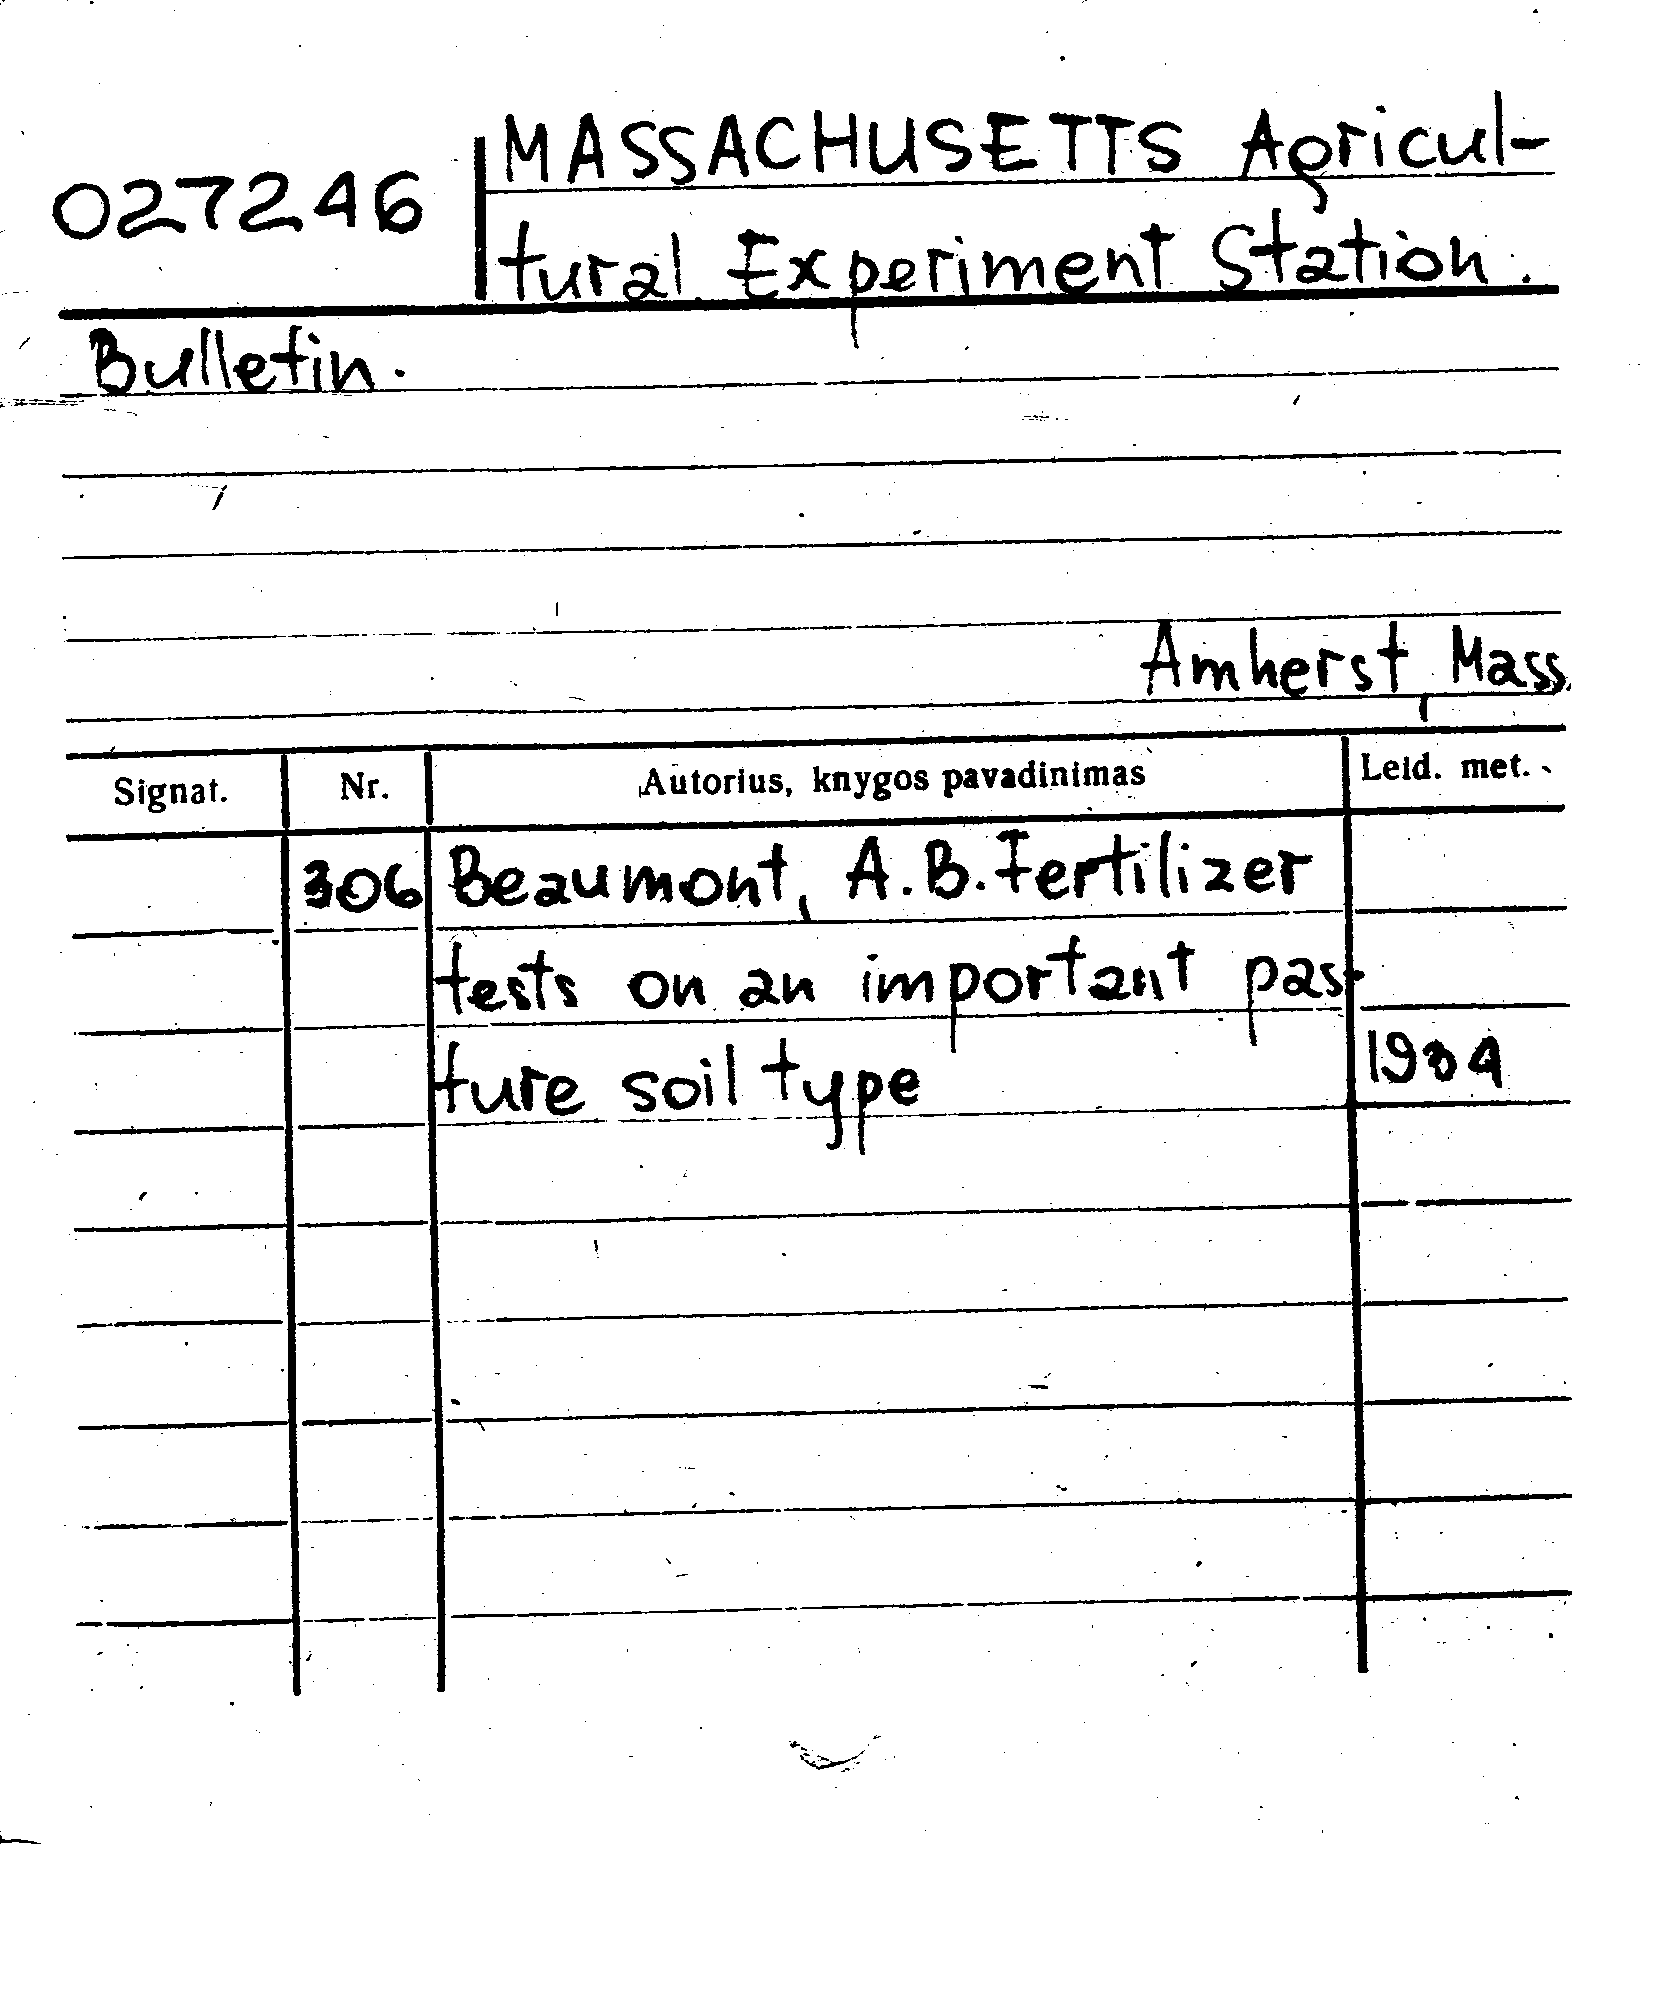 027246 MASSACHUSETTS Agricul-
tural Experiment Station.
Bulletin.
Amherst, Mass.
Signat. Nr. Autorius, knygos pavadinimas Leid. met.
306 Beaumont, A.B. Fertilizer
tests on an important pas-
ture soil type 1934